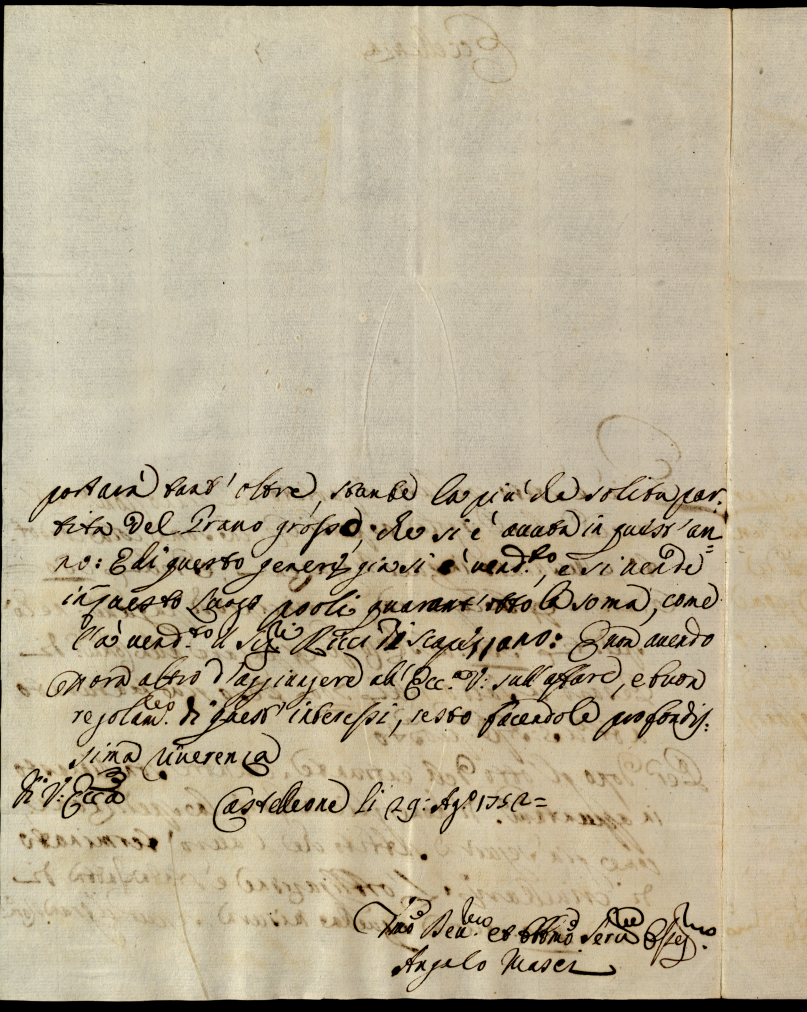 portarà tant' oltre, stante la più che solita par-
tita del Grano grosso, che si è avuta in quest' an=
no: E di questo genere già si è vend.to, e si vende
in questo Luogo paoli quarant'otto la soma, come
l'à vend.to il Sig.r Ricci di Scapezzano: E non avendo
ora altro d'aggiungere all' Ecc.a V: sull' affare, e buon
regolam.to di quest' interessi, resto facendole profondis-
sima riverenza
Di V: Ecc.a
Castelleone li 29: Ag.o 1752=
Umo Dev.mo et Obb.mo Serv.e Osseq.mo
Angelo Masci